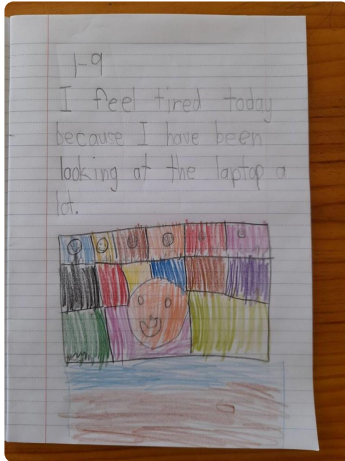 1-9
I feel tired today
because I have been
looking at the laptop a
lot.